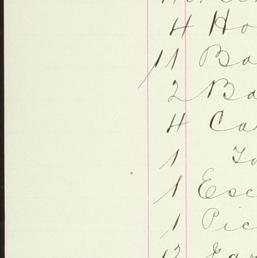 4 Ho
11 Ba
2 Ba
4 Ca
1 To
1 Esc
1 Pic
12